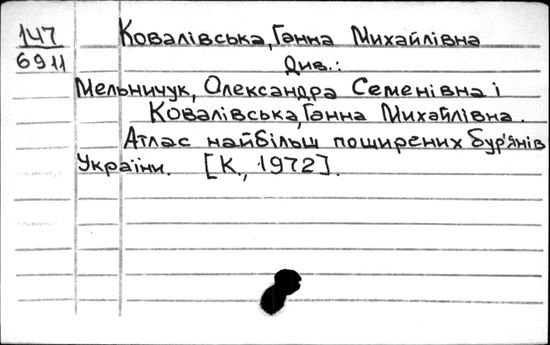 147 Ковалівська, Ганна Михайлівна
6911 Див.:
Мельничук, Олександра Семенівна і
Ковалівська, Ганна Михайлівна.
Атлас найбільш поширених бур'янів
України. [К., 1972].